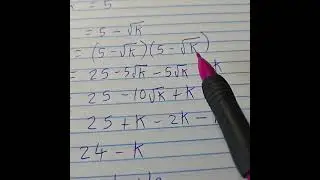 = 5
= 5 - √k
= (5 - √k)(5 - √k)
= 25 - 5√k - 5√k k
25 - 10√k + k
25 + k - 2k -
24 - k